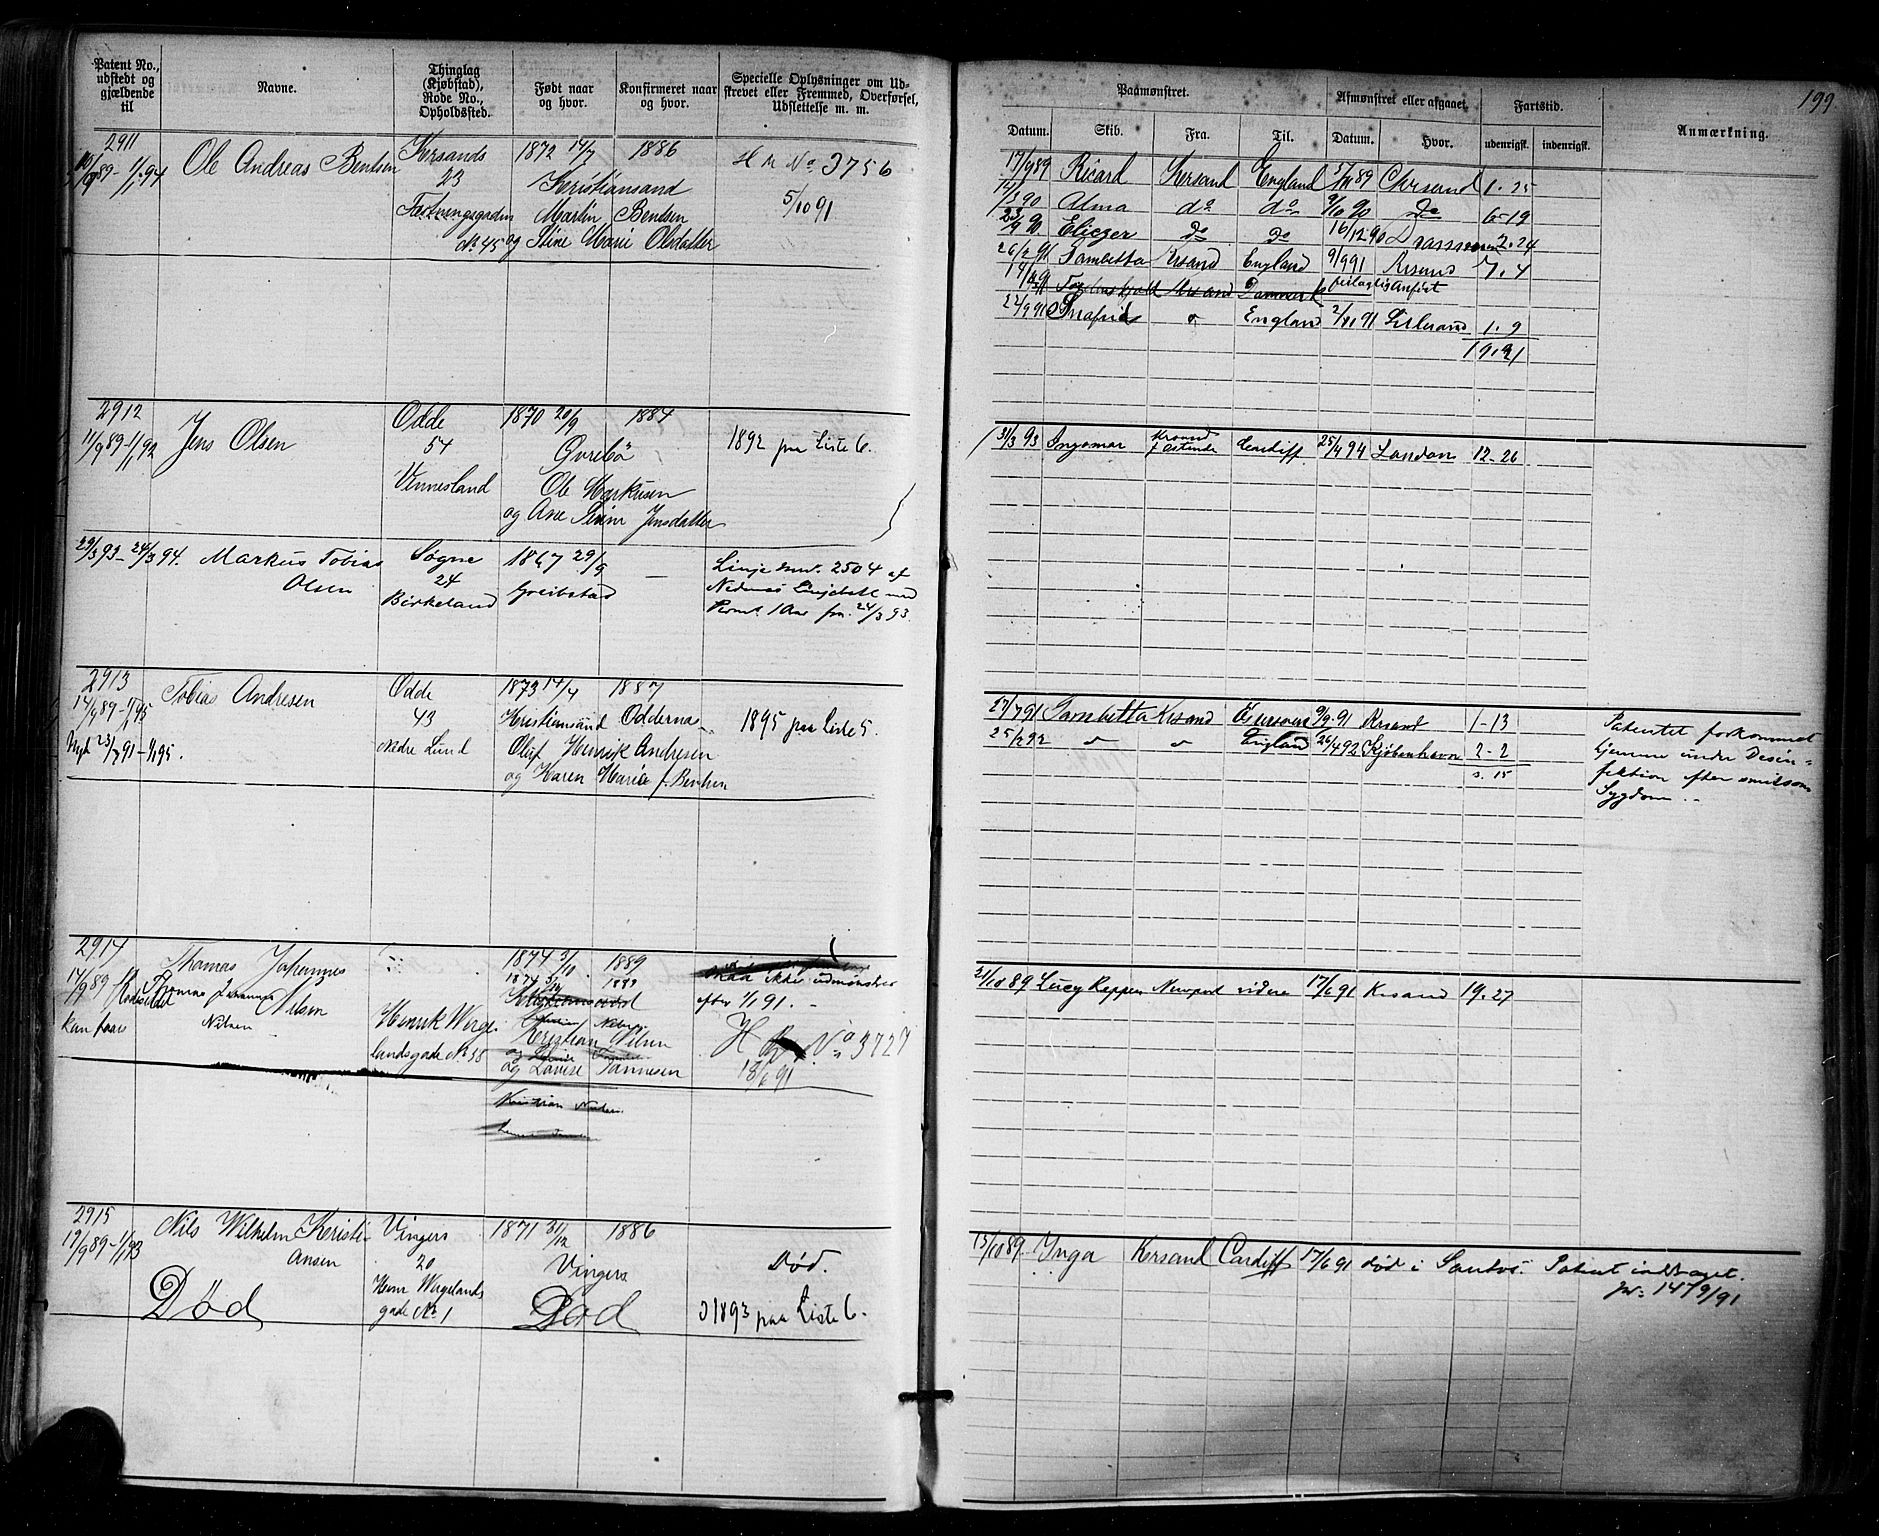 Patent No., udstedt og gjældende til
Navne.
Thinglag (Kjøbstad), Rode No., Opholdssted.
Født naar og hvor.
Konfirmeret naar og hvor.
Specielle Oplysninger om Udskrevet eller Fremmed, Overførsel, Udslettelse m. m.
2911
10/9 89 - 1/1 94 Ole Andreas Bentsen
Krsands
23
Fæstningsgaden
No 45
1872 14/7 1886
Kristiansand
Martin Bentsen
og Stine Marie Olsdatter
No 3756
5/10 91
2912
11/9 89 - 1/1 92 Jens Olsen
Odde
54
Vennesland
1870 20/9 1884
Øvrebö
Ole Markusen
og Ane Jensdatter
1892 paa Liste 6.
29/3 93 - 24/3 94. Markus Tobias
Olsen
Søgne
24
Birkeland
1867 29/9 —
Greibstad
Linje 2504 af
Nedenæs med
1 Aar fra 24/3 93.
2913
14/9 89 - 1/1 95 Tobias Andresen
Nyt 23/7 91 - 1/1 95.
Odde
43
Nedre Lund
1873 14/4 1887
Kristiansand Oddernæs
Oluf Henrik Andresen
og Karen Marie f. Bentsen
1895 paa Liste 5.
2914
14/9 89 Thomas Johannes
Nilsen
Thomas Johannes
Nilsen
Henrik Werge-
landsgade No 38
1874 3/10 1889
Kristian Nilsen
og Lovise Tønnesen
ikke udmønstres
efter 1/1 91.
No 3727
18/6 91
2915
19/9 89 - 1/1 93 Nils Wilhelm Kristi-
ansen
Død
Vingers
20
Henr Wergelands
gade No 1
1871 31/12 1886
Vingers
Død
Død.
1893 paa Liste 6.
199.
Paamønstret.
Afmønstret eller afgaaet.
Fartstid.
Anmærkning.
Datum. Skib. Fra. Til. Datum. Hvor. udenrigsk. indenrigsk.
17/9 89 Ricard Kersand England 5/11 89 Chrsand 1. 25
Alma do do 9/10 90 Do 6-19
23/9 90 Eliezer do do 16/12 90 Drammen 2. 24
26/2 91 Gambetta Krsand England 9/9 91 Krsand
feilagtig Anført
22/9 91 Snafrid England 2/11 91 Lillesand 1. 9
19. 21
31/3 93 Ingomar Cardiff 25/4 94 London 12-26
27/7 91 Gambetta Krsand 9/9. 91 Krsand 1-13
25/2 92 England 26/4 92 Kjøbenhavn 2-2
3. 15
Patentet forkommet
hjemme under Desin-
fektion efter smitsom
Sygdom.
21/10 89 Lucy Newport videre 17/6 91 Krsand 19. 27
15/10 89. Ynga Kersand Cardiff 17/6 91 død i Santos. Patent inddraget.
jr: 1479/91